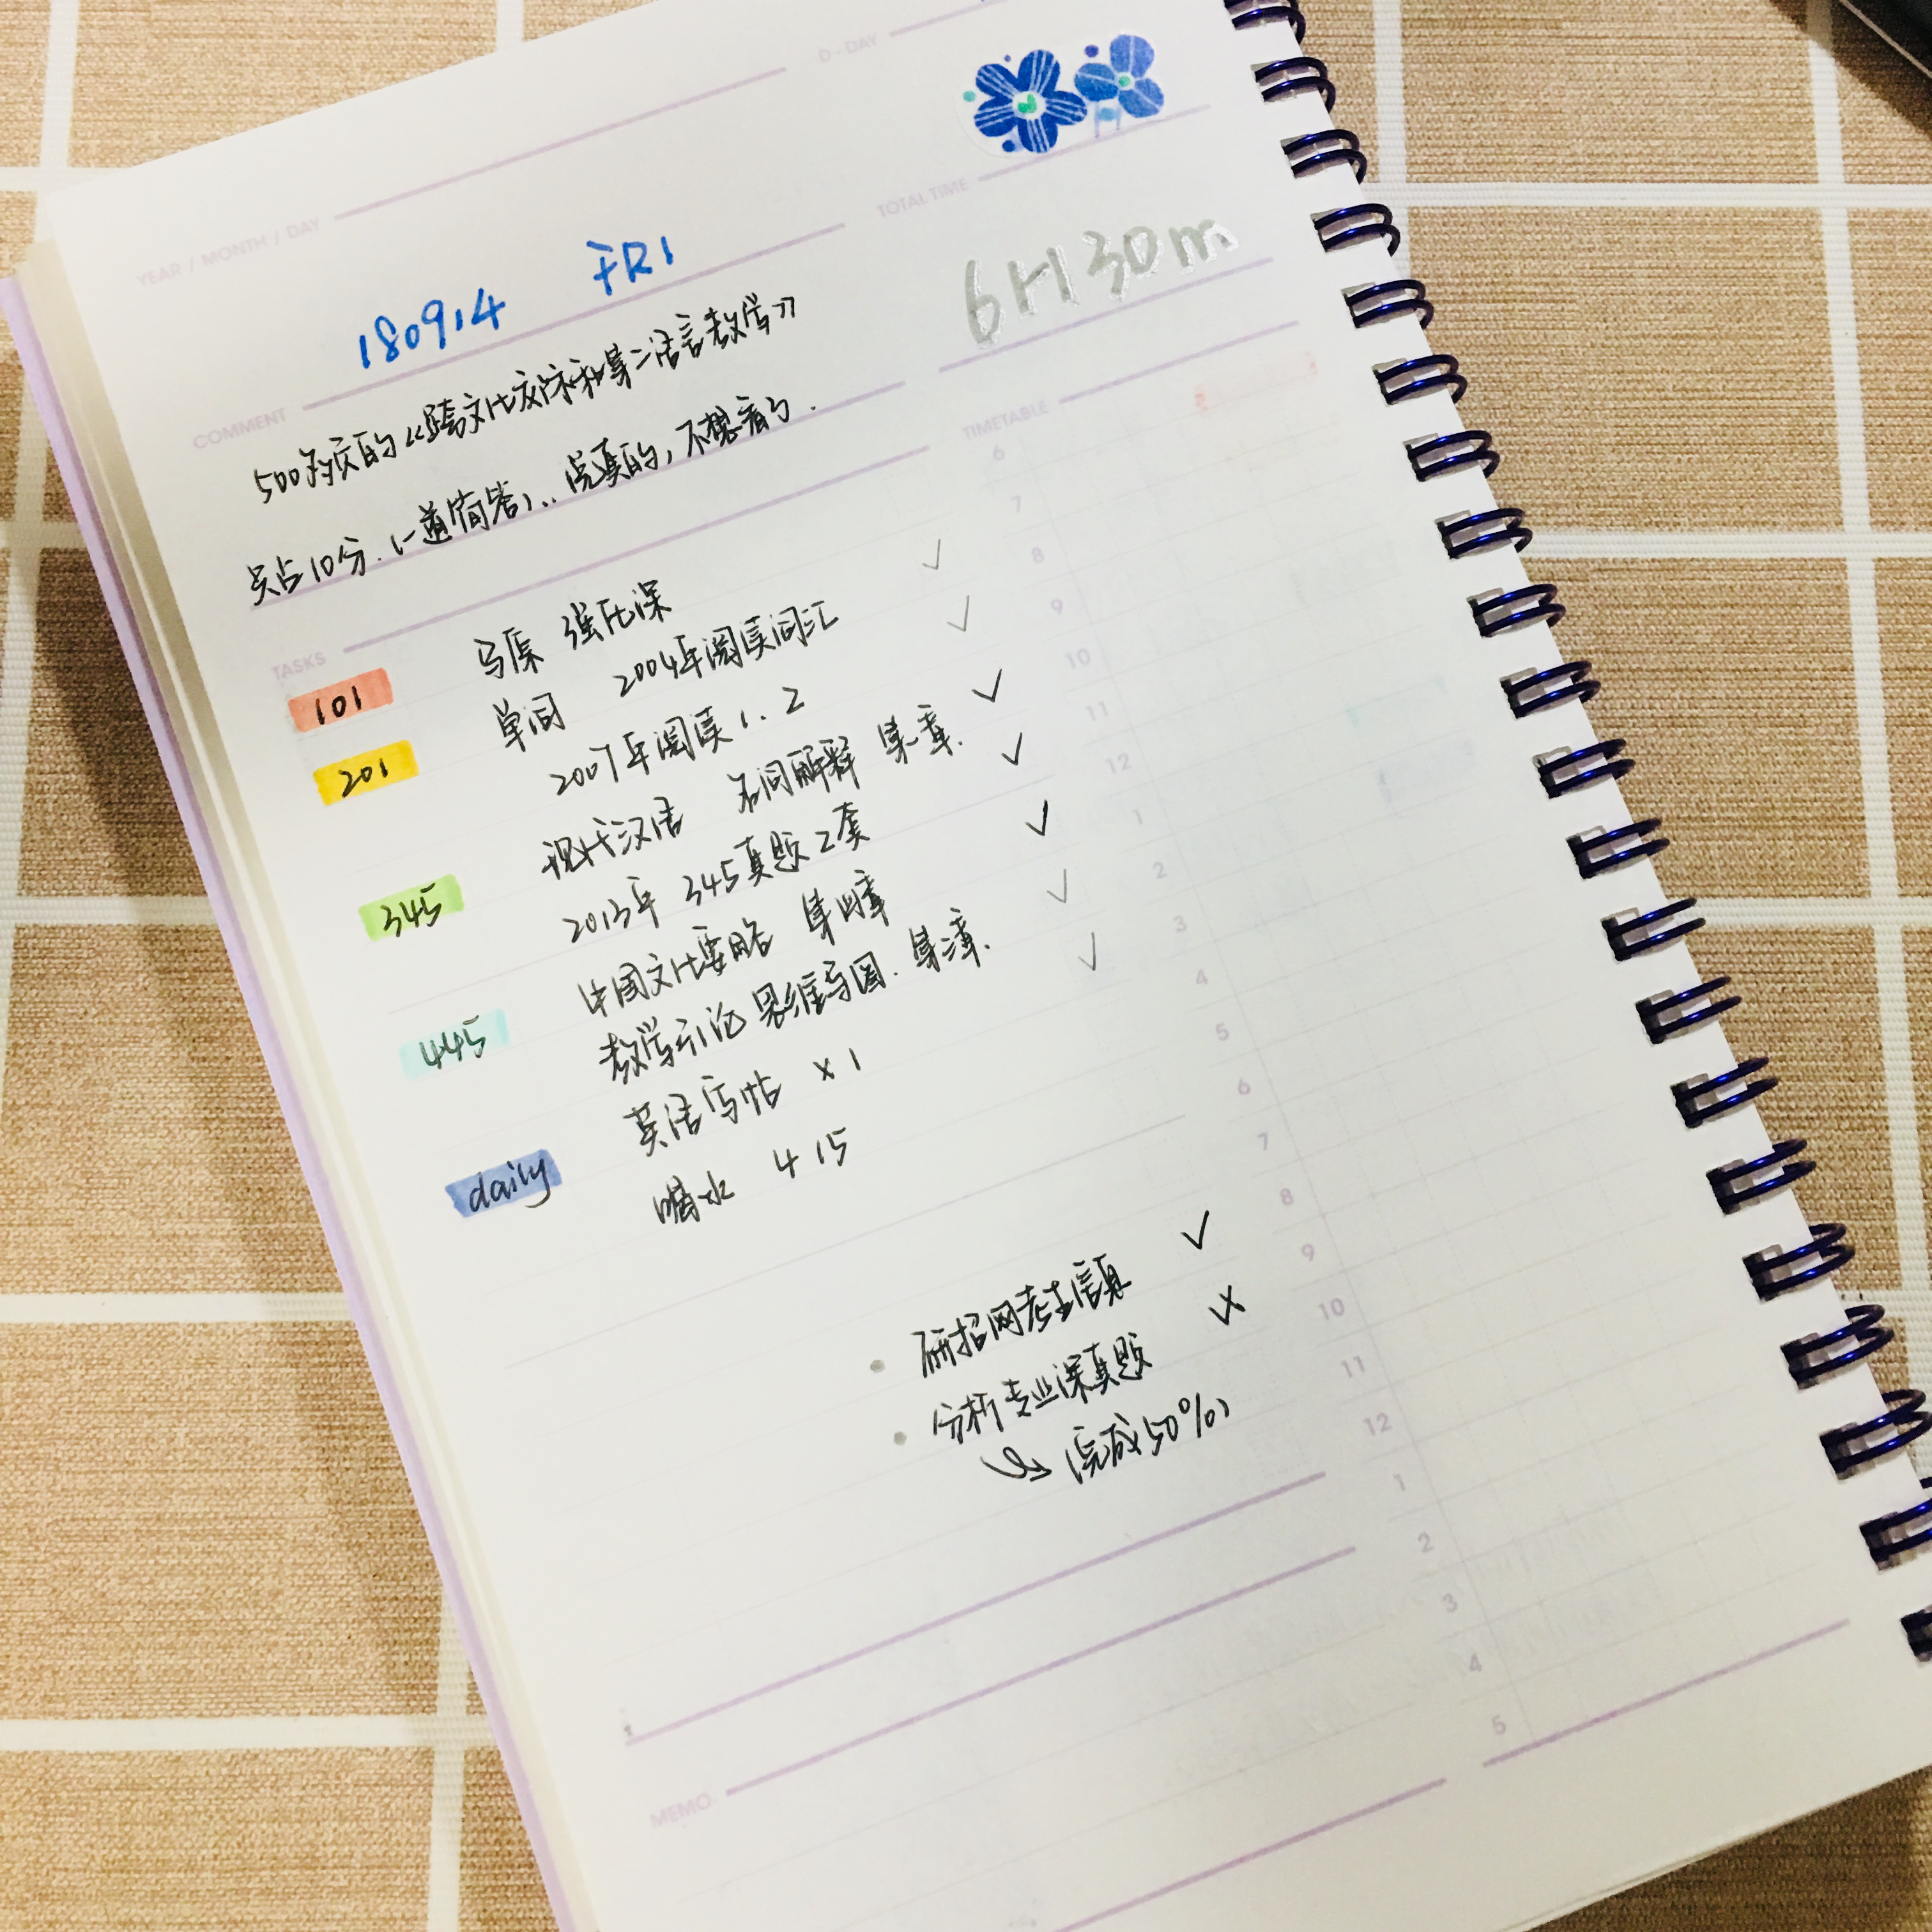 D-DAY
YEAR / MONTH / DAY
180914 FRI
TOTAL TIME
6H30m
COMMENT
500多页的《跨文化交际和第二语言教学》
只占10分.(一道简答)... 说真的,不想看了.
TASKS
TIMETABLE
101 马原 强化课 ✓
201 单词 2004年阅读词汇 ✓
2007年阅读1.2 ✓
345 现代汉语 名词解释 第一章. ✓
2013年 345真题2套 ✓
445 中国文化要略 第四章 ✓
教学引论 思维导图. 第三章. ✓
daily 英语字帖 ×1
喝水 4 15
• 研招网考生信息 ✓
• 分析专业课真题 ×
完成50%)
6
7
8
9
10
11
12
1
2
3
4
5
6
7
8
9
10
11
12
1
2
3
4
5
MEMO